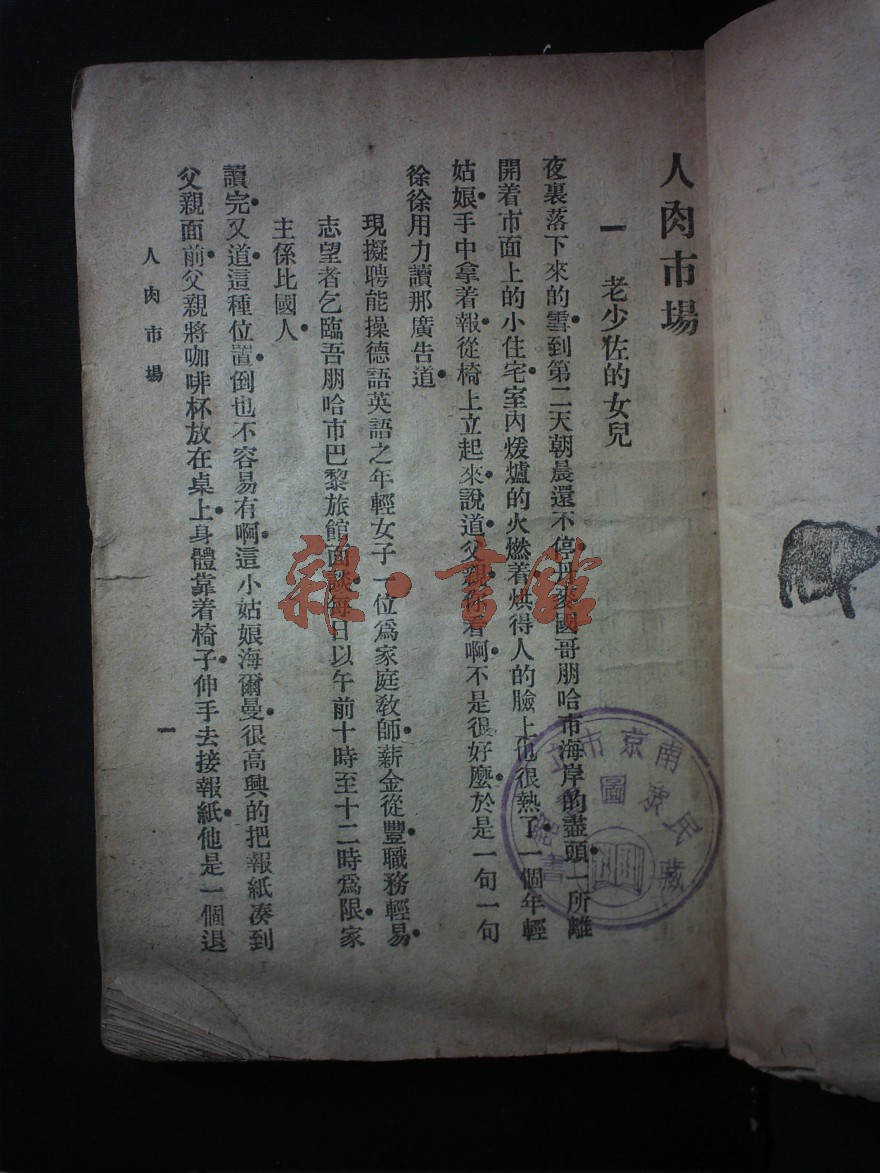 人肉市場
一　老少佐的女兒
夜裏落下來的雪到第二天朝晨還不停丹麥國哥朋哈市海岸的盡頭一所離
開着市面上的小住宅室內煖爐的火燃着烘得人的臉上也很熱了一個年輕
姑娘手中拿着報從椅上立起來說道父親你看啊不是很好麼於是一句一句
徐徐用力讀那廣告道
現擬聘能操德語英語之年輕女子一位爲家庭敎師薪金從豐職務輕易
志望者乞臨吾朋哈市巴黎旅館面談每日以午前十時至十二時爲限家
主係比國人
讀完又道這種位置倒也不容易有啊這小姑娘海爾曼很高興的把報紙凑到
父親面前父親將咖啡杯放在桌上身體靠着椅子伸手去接報紙他是一個退
人肉市場
一
雜·書館
南京市立
民衆
圖書館
藏